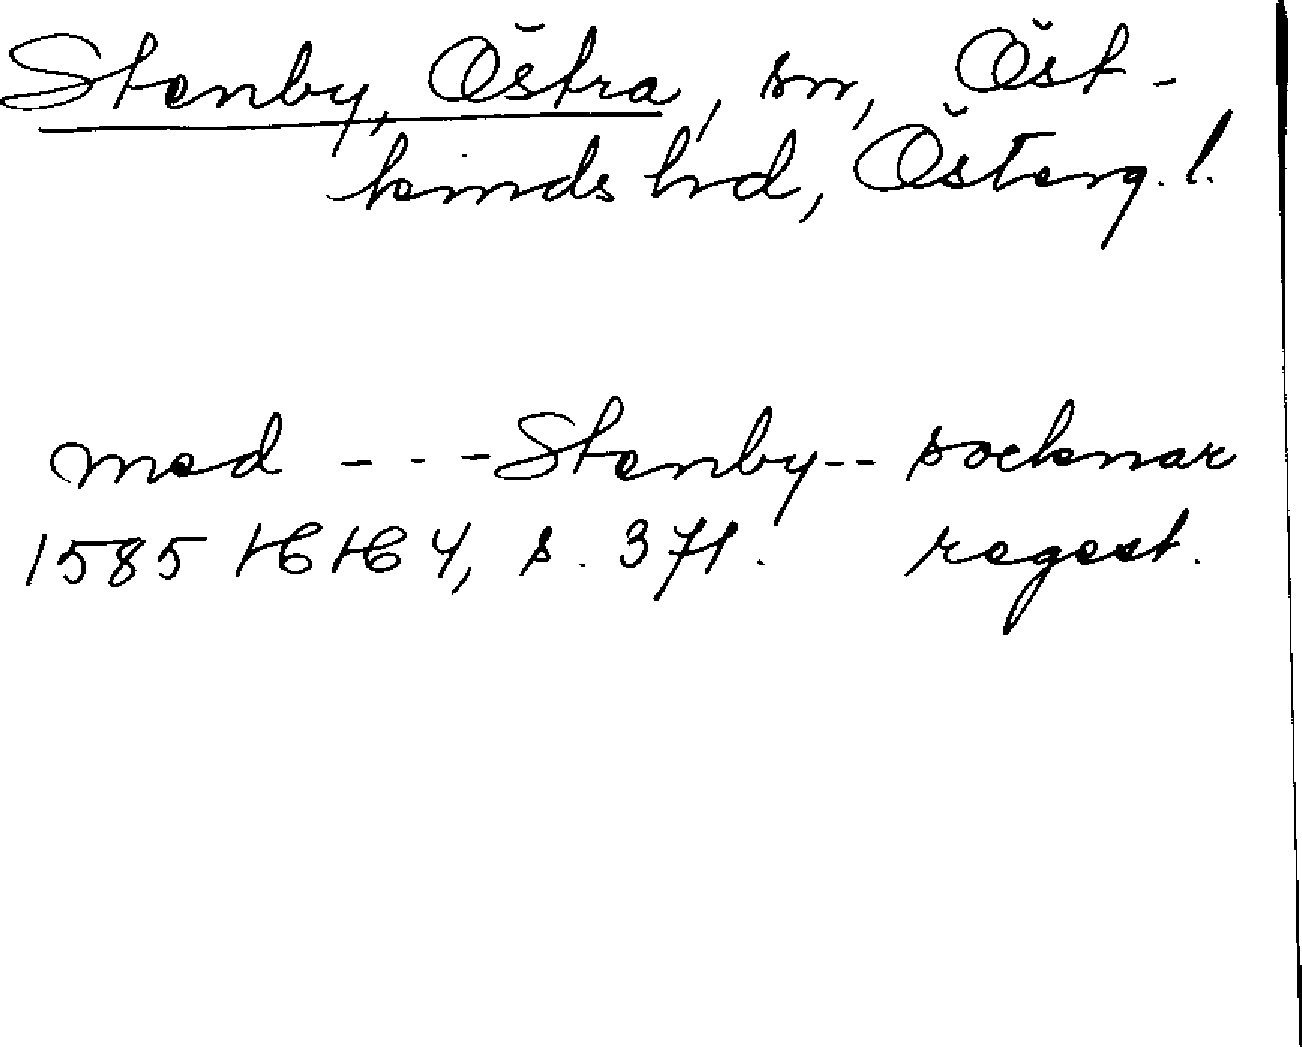 Stenby, Östra, sn, Öst-
kinds hd, Österg. l.
med - - - Stenby - - socknar
1585 HH 4, s. 371. regest.